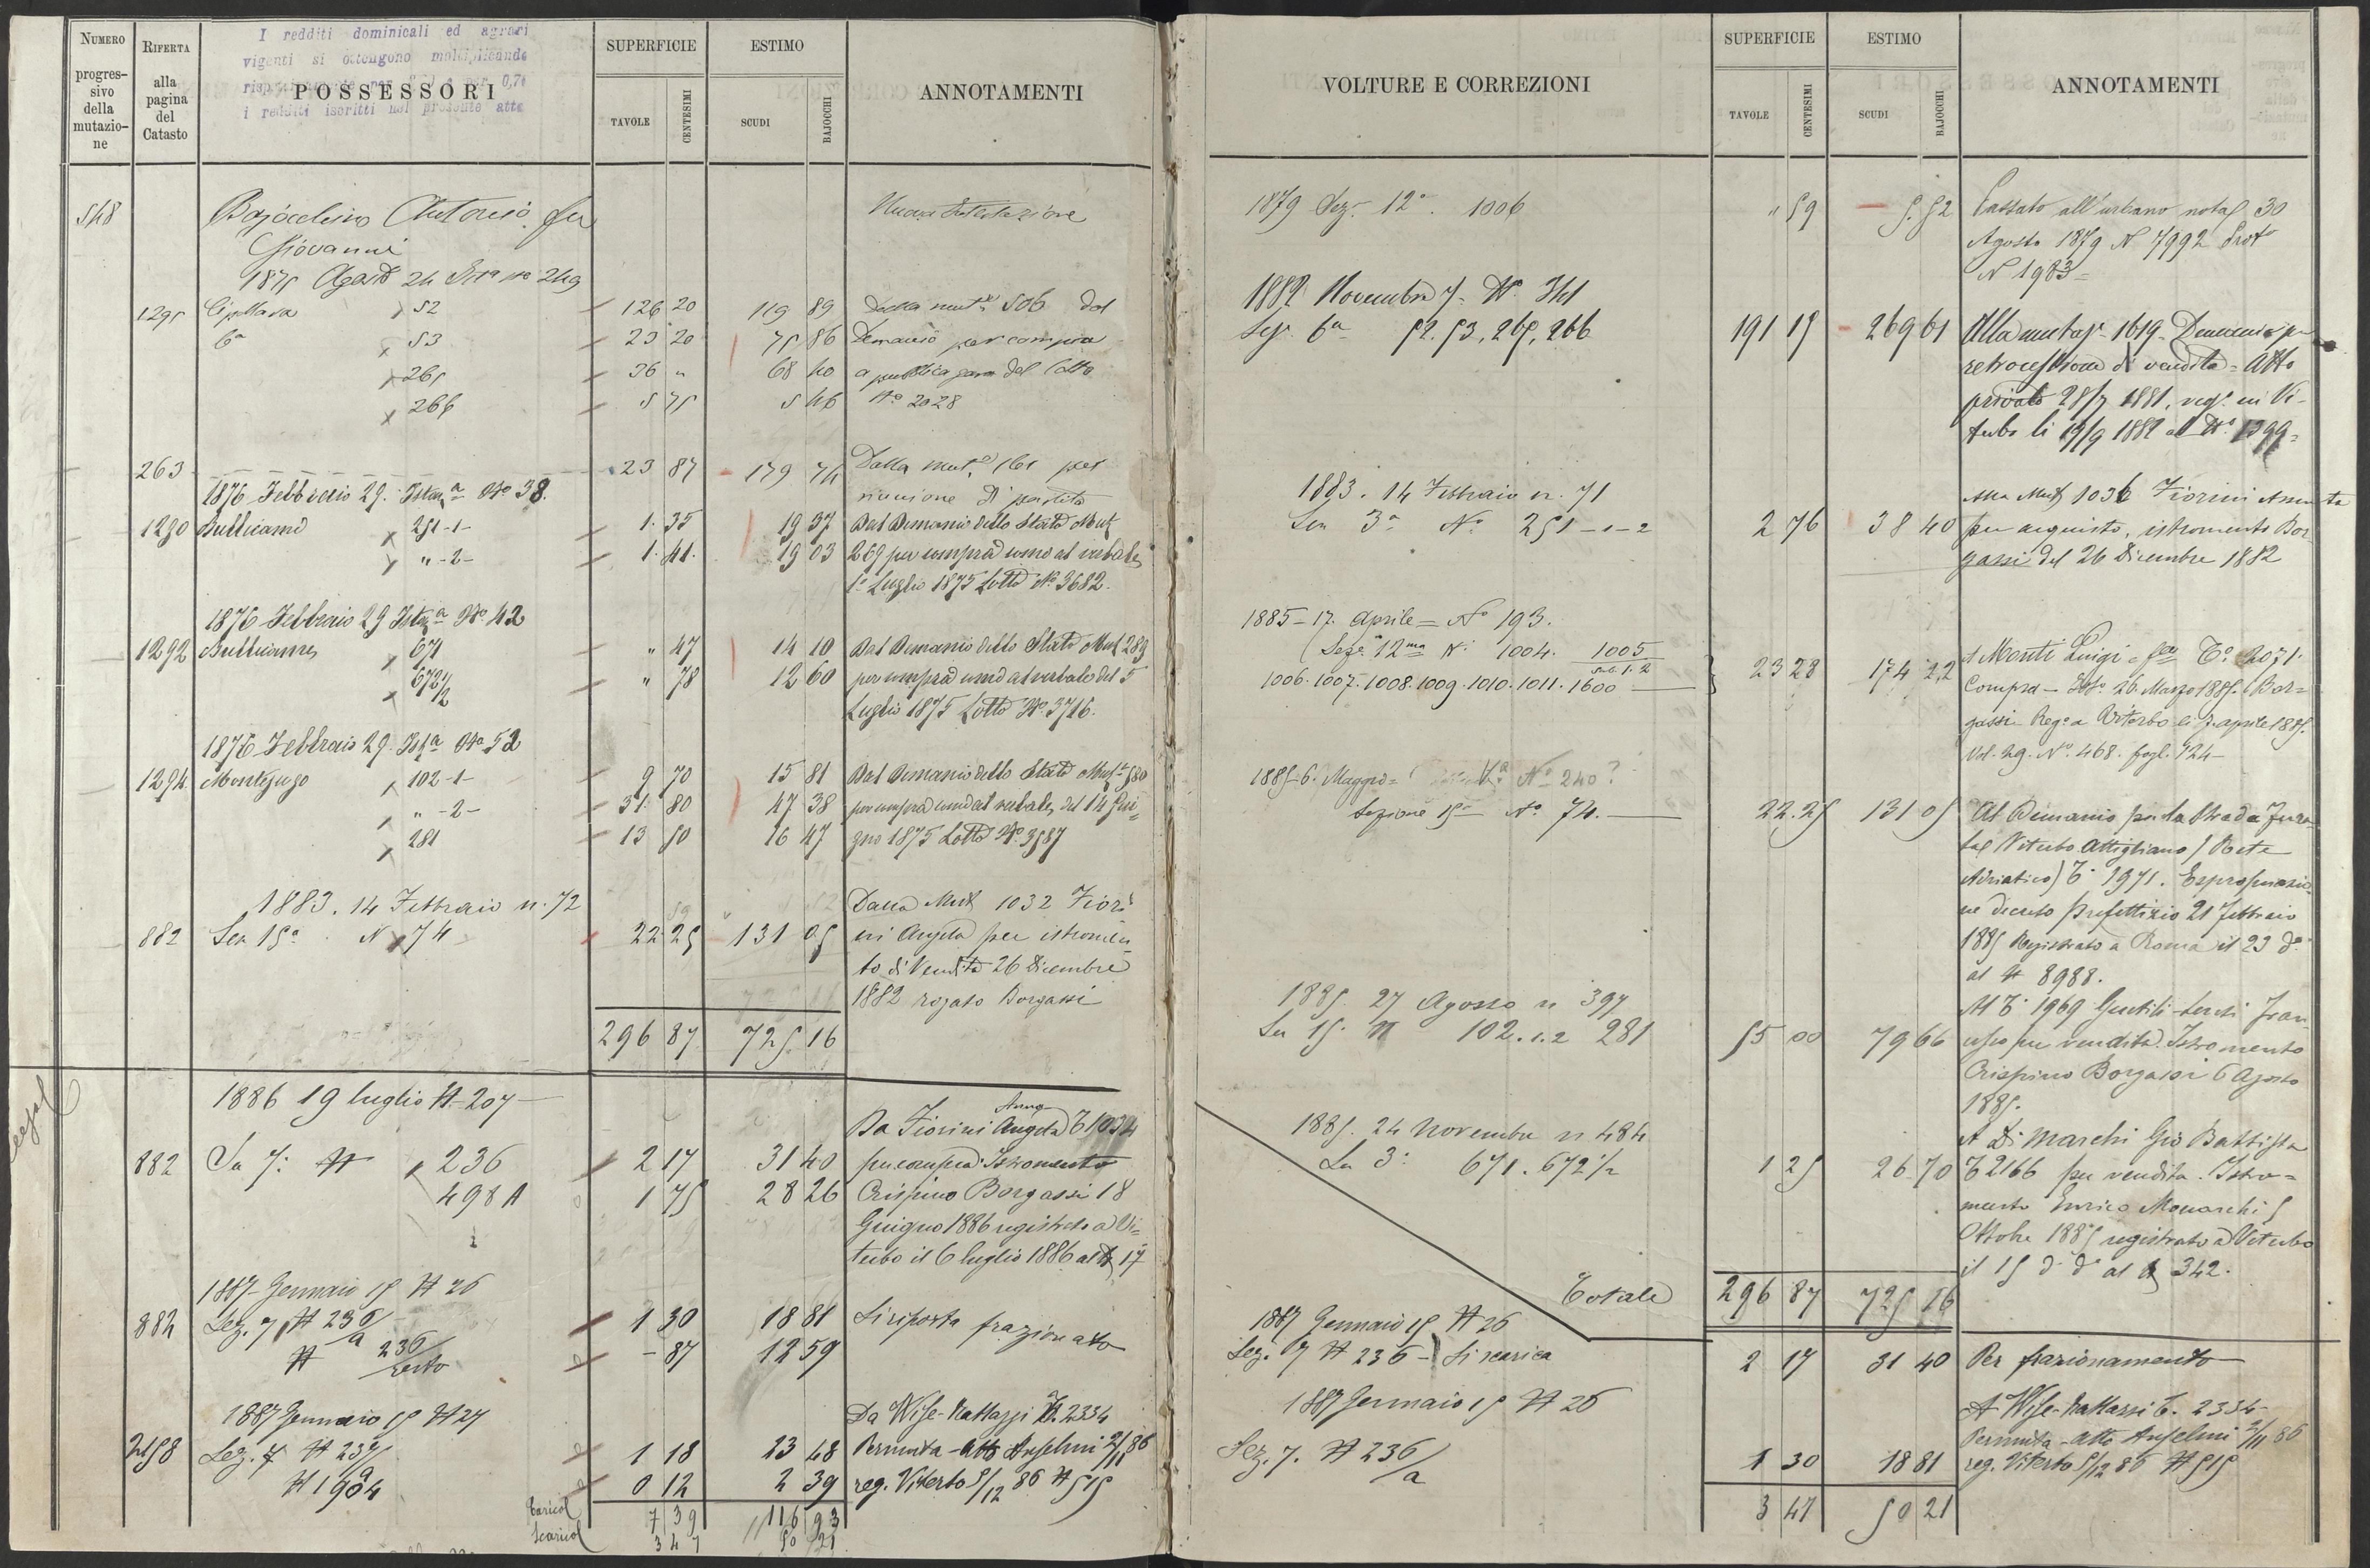 NUMERO
progres-
sivo
della
mutazio-
ne
RIFERTA
alla
pagina
del
Catasto
I redditi dominicali ed agrari
vigenti si ottengono moltiplicando
per 0,70
i redditi iscritti nel presente atto
POSSESSORI
SUPERFICIE
TAVOLE CENTESIMI
ESTIMO
SCUDI BAJOCCHI
ANNOTAMENTI
548 Bajocchino Antonio fu Nuova Intestazione
Giovanni
1875 Agosto 24 No 249
1295 52 126 20 119 89 Dalla mut.e 506 dal
6a 53 23 20 75 86 Demanio per compra
265 36 " 68 40 a pubblica gara del Lotto
266 5 75 5 46 No 2028
263 23 87 179 74 Dalla mut.e per
riunione di partita
1876 Febbraio 29. Istza No 38.
1290 Bullicame 251-1- 1. 35 19 37 Dal Demanio dello Stato Mut
"-2- 1. 41. 19 03 269 per compra come al verbale
1o Luglio 1875 Lotto No 3682.
1876 Febbraio 29 Istza No 42
1292 Bullicame 671 " 47 14 10 Dal Demanio dello Stato Mut 289
672 1/2 " 78 12 60 per compra come al verbale del 5
Luglio 1875 Lotto No 3716.
1876 Febbraio 29. Istza No 52
1294 Montejugo 102-1- 9 70 15 81 Dal Demanio dello Stato Mut. 580
"-2- 31. 80 47 38 per compra come al verbale del 14 Giu-
281 13 50 16 47 gno 1875 Lotto No 3587
1883. 14 Febbraio n. 72 Dalla Mut 1032 Fiori
882 Sez 15a N 74 22 25 131 05 ni Angela per istromen
to di Vendita 26 Dicembre
1882 rogato Borgassi
296 87 725. 16
1886 19 luglio N 207
Anna
Da Fiorini Angela T 1034
882 Sez 7: N 236 2 17 31 40 per compra. Istromento
498 A 1 75 28 26 Crispino Borgassi 18
Giugno 1886 registrato a Vi-
terbo il 6 luglio 1886 al N 17
1887 Gennaio 15 N 26
882 Sez. 7 N 236/a 1 30 18 81 Si riporta frazionato
N 236/resto - 87 12 59
1887 Gennaio 15 N 27 Da Wise-Rattazzi T. 2334
2158 Sez. 7 N 237/a 1 18 23 48 Permuta - Atto Anselmi 2/11 86
N 1904 0 12 2 39 reg. Viterbo 5/12 86 N 515
Caricol 7 39 116 93
Scaricol 3 47 50 21
VOLTURE E CORREZIONI
SUPERFICIE
TAVOLE CENTESIMI
ESTIMO
SCUDI BAJOCCHI
ANNOTAMENTI
1879 Sez. 12a. 1006 " 59 5.52 Passato all'urbano notaf 30
Agosto 1879 N 7992 Proto
N 1983 =
1882 Novembre 7. No 341
Sez. 6a 52. 53, 265, 266 191 15 269 61 Alla mutaz. 1619 Demanio per
retrocessione di vendita = Atto
privato 28/7 1881, reg. in Vi-
terbo li 19/9 1882 al No 1399 =
1883. 14 Febbraio n. 71 Alla Mut 1036 Fiorini Assunta
Sez 3a No 251-1-2 2 76 38 40 per acquisto, istromento Bor-
gassi del 26 Dicembre 1882
1885 - 17. Aprile = No 193.
(Seze 12ma N. 1004. 1005 sub. 1.2
1006. 1007. 1008. 1009. 1010. 1011. 1600 23 28 174 22 A Monti Luigi To 2071.
Compra - 26. Marzo 1885. (Bor=
gassi - Rego a Viterbo li 7 aprile 1885.
Vol. 29. No 468. fogl. 124 -
1885-6. Maggio = No 240?
Sezione 15a No 74. 22.25 131 05 Al Demanio per la Strada Ferra
ta Viterbo Attigliano (Rete
Adriatica) T. 1971. Espropriazio
ne decreto Prefettizio 21 febbraio
1885 Registrato a Roma il 23 do
al N 8988.
1885. 27 Agosto n 397 Al T. 1969 Gentili-Fran
Sez 15. N 102.1.2 281 55 00 79 66 cesco per vendita. Istromento
Crispino Borgassi 6 Agosto
1885.
1885. 24 Novembre n 484 A Di Marchi Gio Battista
Sez 3a 671. 672 1/2 1 25 26.70 T 2166 per vendita. Istro=
mento Enrico Monarchi 5
Ottobre 1885 registrato a Viterbo
il 15 do do al N 342.
Totale 296 87 725 16
1887 Gennaio 15 N 26
Sez. 7 N 236 - Si scarica 2 17 31 40 Per frazionamento
1887 Gennaio 15 N 26 A Wise-Rattazzi T. 2334-
Permuta - atto Anselmi 2/11 86
Sez. 7. N 236/a 1 30 18 81 reg. Viterbo 5/12 86 N 515
3 47 50 21